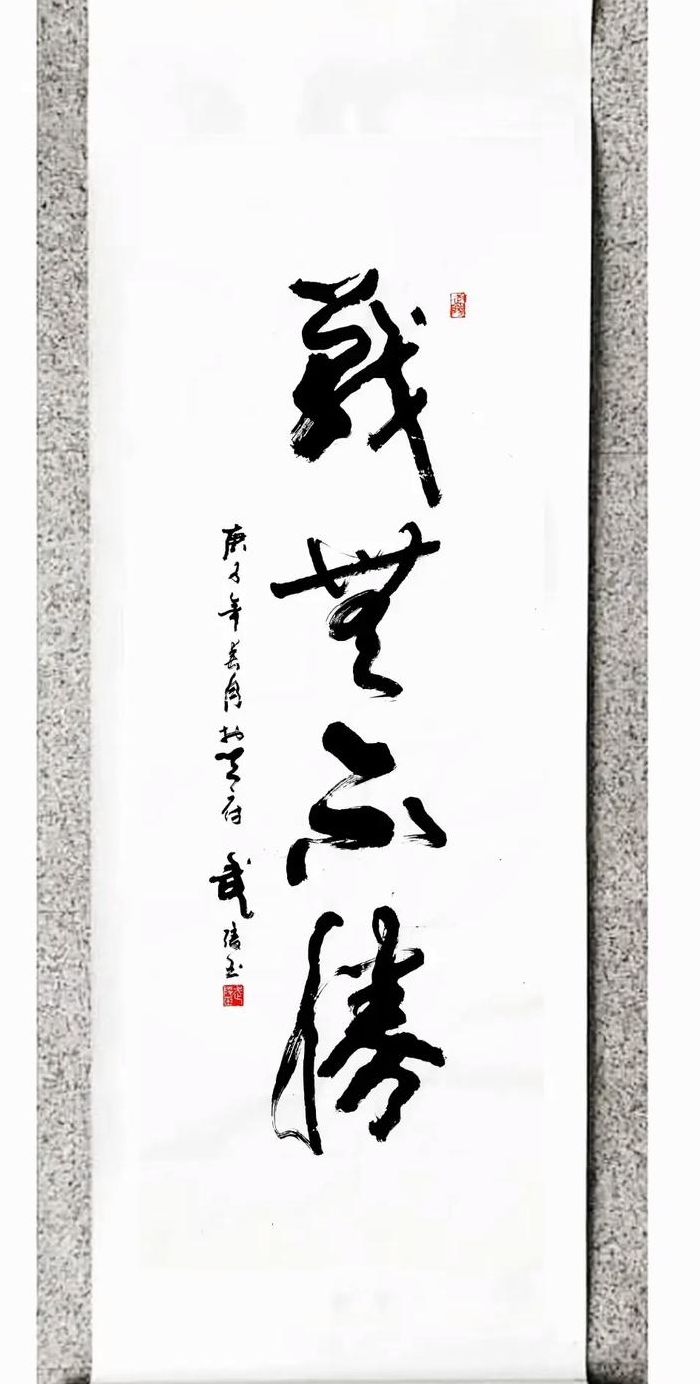 戰無不勝
庚子年春月於天府武陵玉